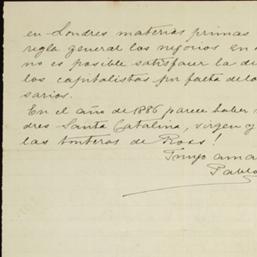 en Londres materias primas
regla general los negocios en
no es posible satisfacer la
los capitalistas por falta de los
sarios.
En el año de 1886 parece haber
dres Santa Catalina, virgen y
las tonteras de Ross!
Tuyo
Pablo